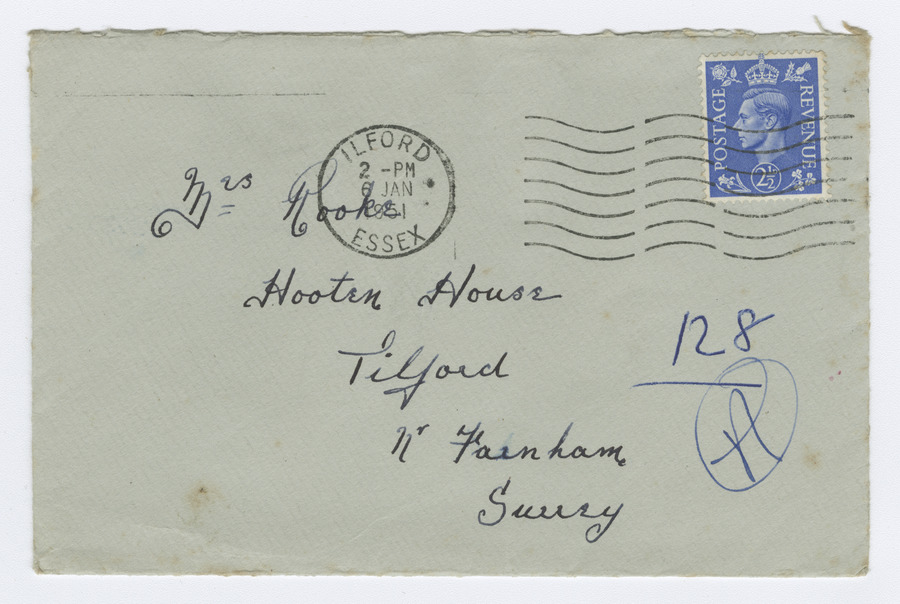 POSTAGE REVENUE
2½
ILFORD
2 - PM
6 JAN
1951
ESSEX
Mrs Rooke
Hooten House
Tilford
Nr Farnham
Surrey
128
A